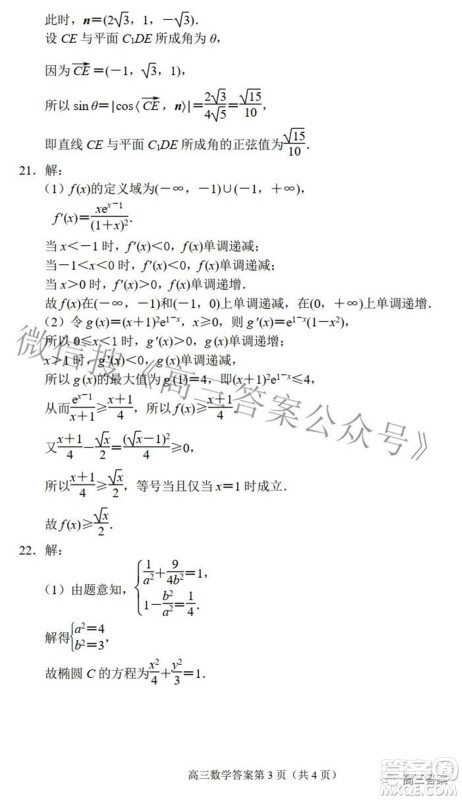 此时，n=(2√3，1，-√3)．
设 CE 与平面 C₁DE 所成角为 θ，
因为 CE⃗=(-1，√3，1)，
所以 sin θ=|cos⟨CE⃗，n⟩|=2√3/4√5=√15/10，
即直线 CE 与平面 C₁DE 所成角的正弦值为 √15/10．
21．解：
（1）f(x)的定义域为(-∞，-1)∪(-1，+∞)，
f′(x)=xeˣ⁻¹/(1+x)²．
当 x<-1 时，f′(x)<0，f(x)单调递减；
当-1<x<0 时，f′(x)<0，f(x)单调递减；
当 x>0 时，f′(x)>0，f(x)单调递增．
故 f(x)在(-∞，-1)和(-1，0)上单调递减，在(0，+∞)上单调递增．
（2）令 g(x)=(x+1)²e¹⁻ˣ，x≥0，则 g′(x)=e¹⁻ˣ(1-x²)，
所以 0≤x<1 时，g′(x)>0，g(x)单调递增；
x>1 时，g′(x)<0，g(x)单调递减，
所以 g(x)的最大值为 g(1)=4，即(x+1)²e¹⁻ˣ≤4，
从而 eˣ⁻¹/x+1≥x+1/4，所以 f(x)≥x+1/4．
又 x+1/4-√x/2=(√x-1)²/4≥0，
所以 x+1/4≥√x/2，等号当且仅当 x=1 时成立．
故 f(x)≥√x/2．
22．解：
（1）由题意知，{1/a²+9/4b²=1，
1-b²/a²=1/4．
解得{a²=4
b²=3，
故椭圆 C 的方程为 x²/4+y²/3=1．
高三数学答案第 3 页（共 4 页）
微信搜《高三答案公众号》
答案圈
高三答案
MXQE.COM